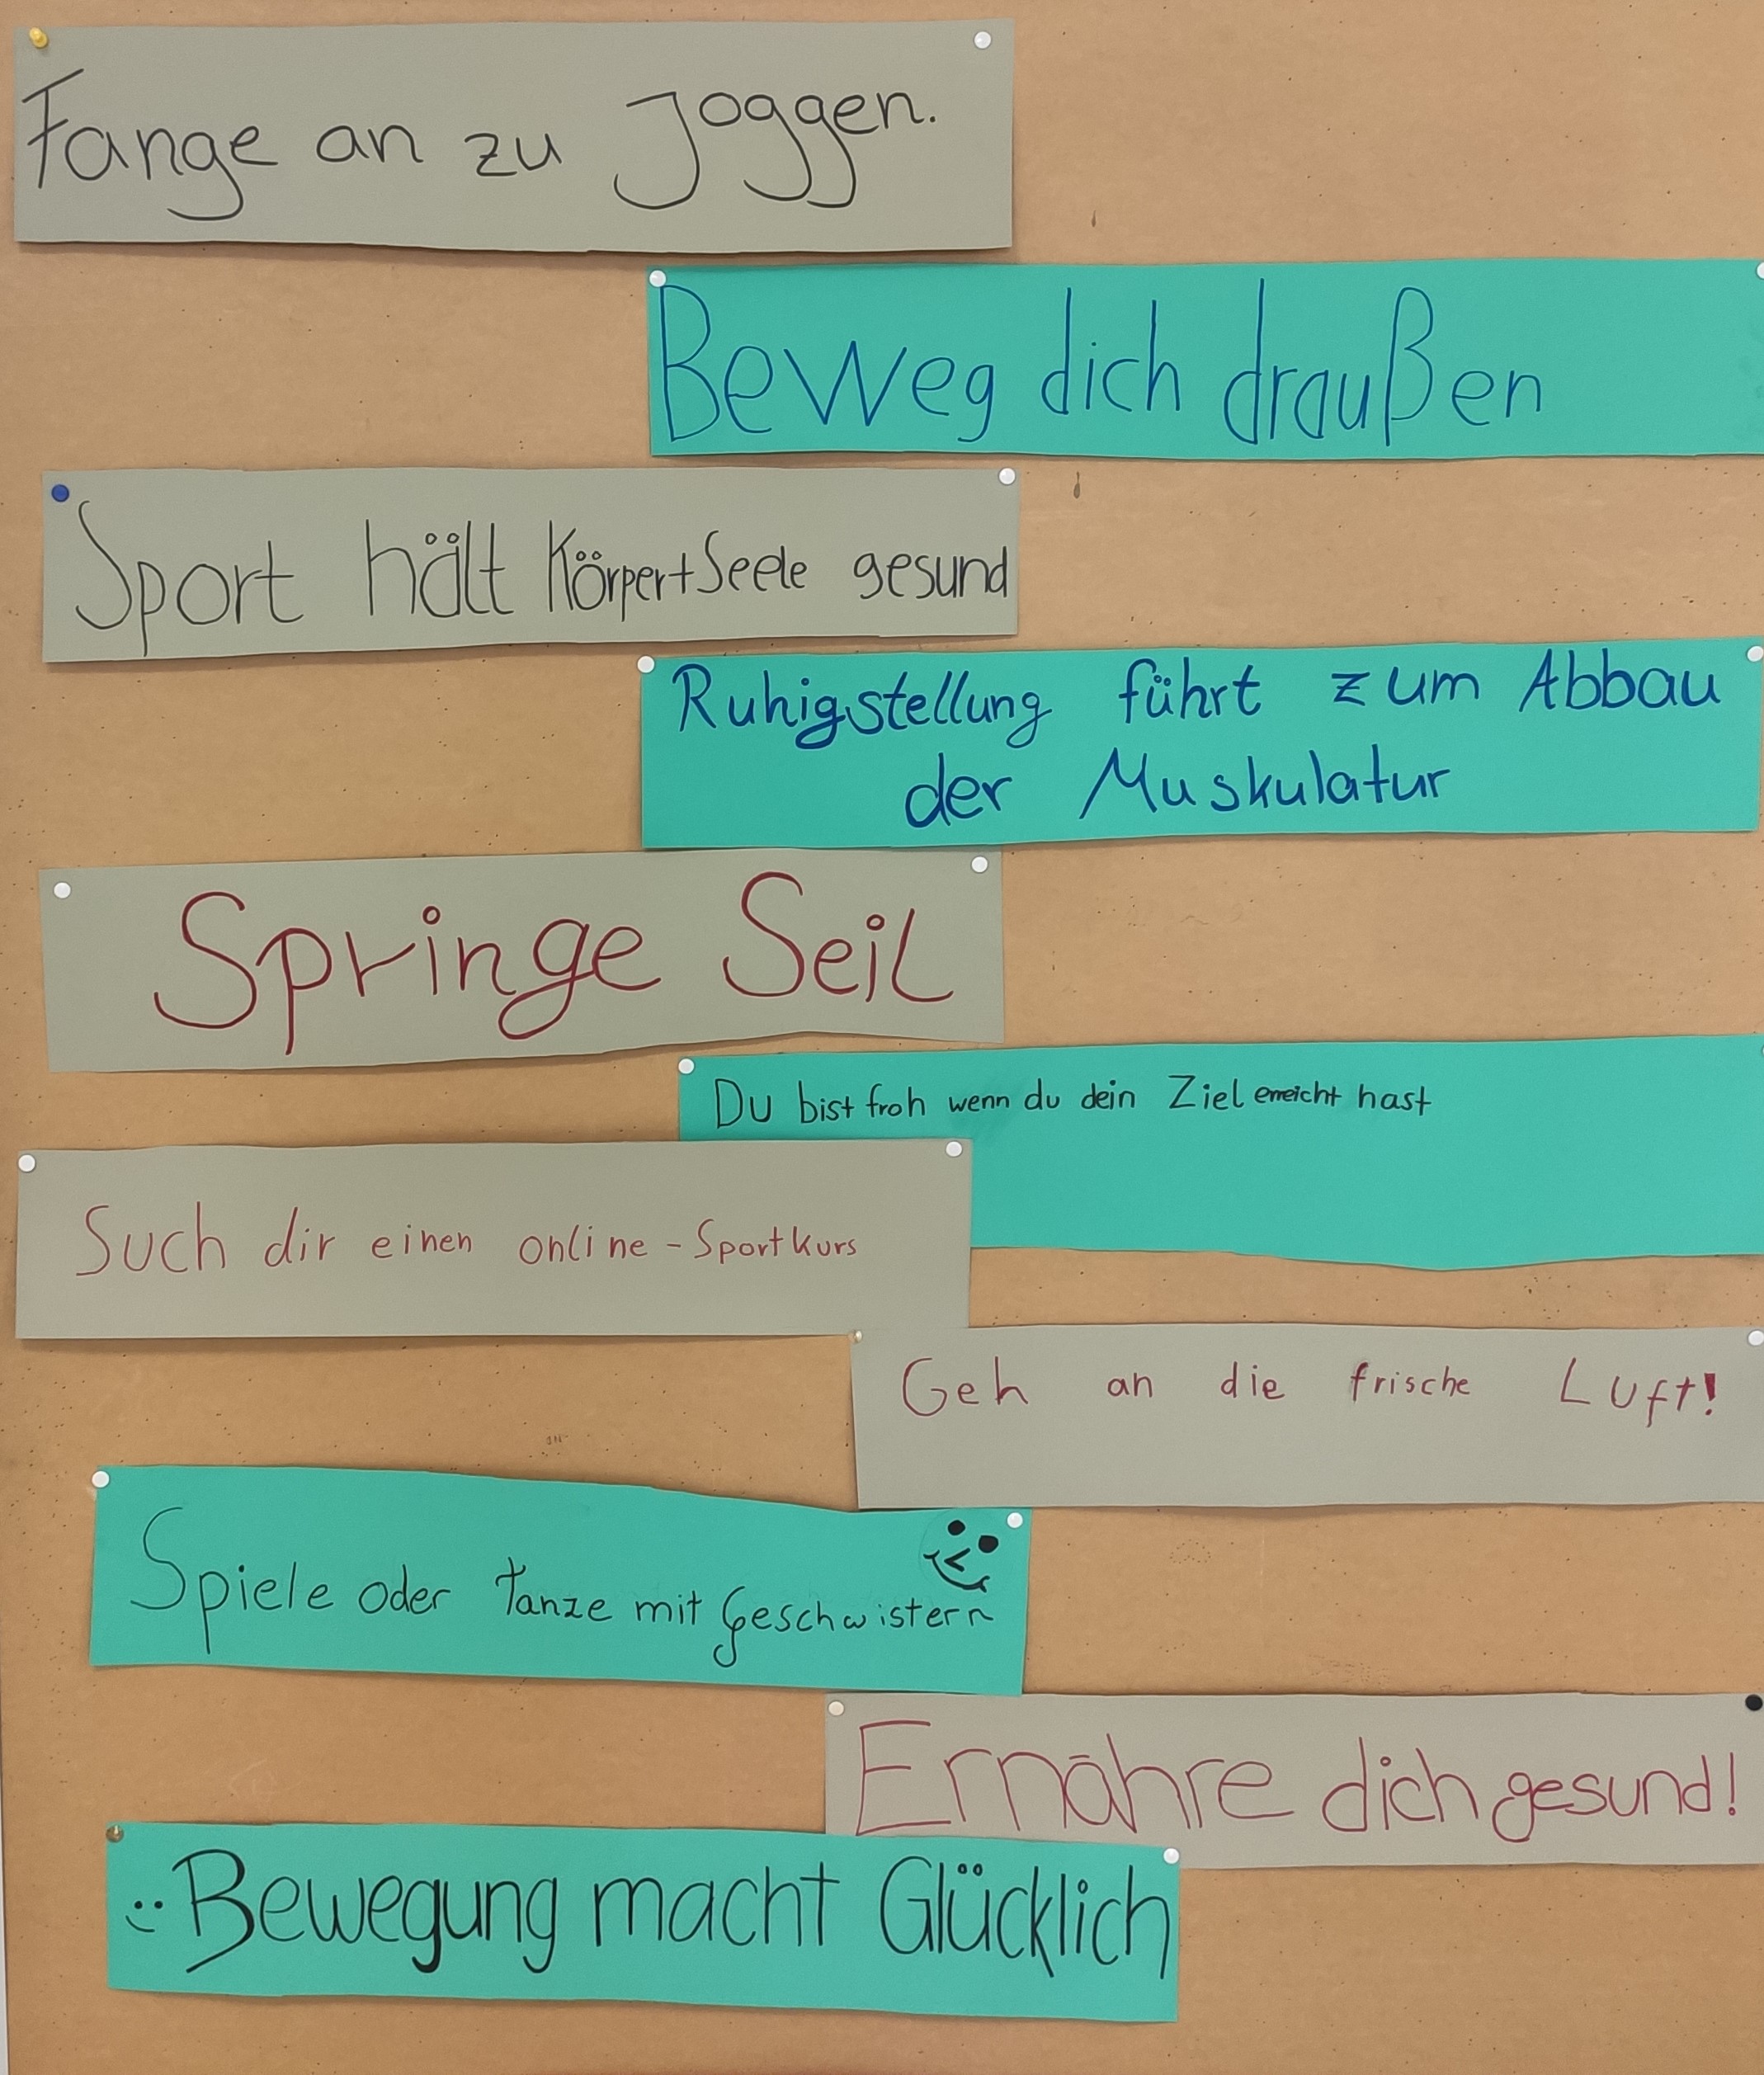 Fange an zu Joggen.
Beweg dich draußen
Sport hält Körper+Seele gesund
Ruhigstellung führt zum Abbau
der Muskulatur
Springe Seil
Du bist froh wenn du dein Ziel erreicht hast
Such dir einen online-Sportkurs
Geh an die frische Luft!
Spiele oder tanze mit Geschwistern
Ernähre dich gesund!
Bewegung macht Glücklich